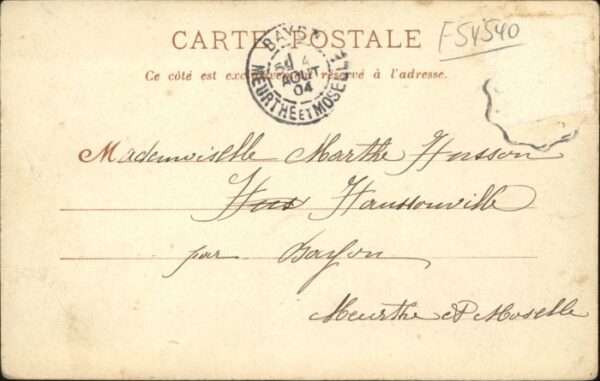 CARTE POSTALE
F54540
Ce côté est exclusivement réservé à l'adresse.
BAYON
5E 4
AOUT
04
MEURTHE ET MOSELLE
Mademoiselle Marthe Husson
Haussonville
par Bayon
Meurthe et Moselle